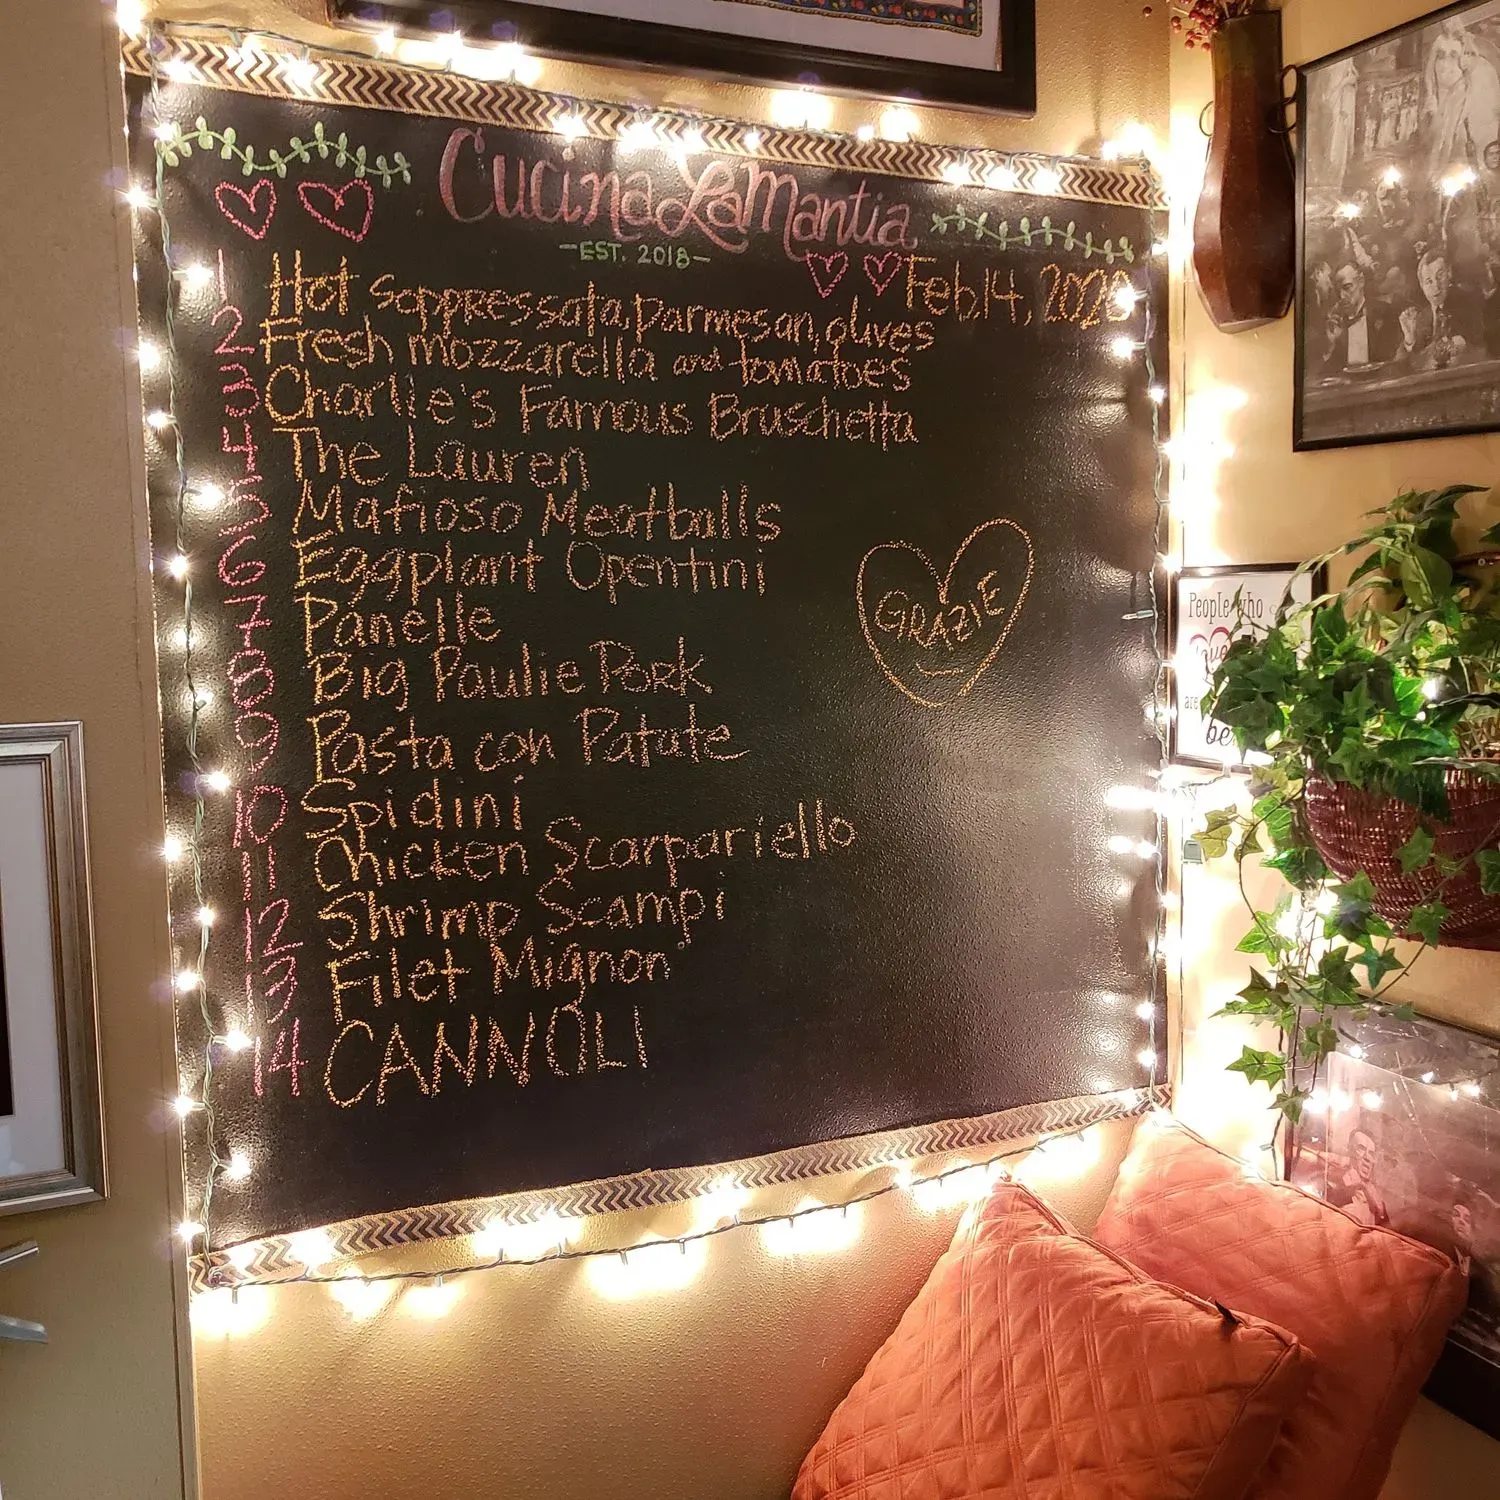 Cucina LaMantia
-EST. 2018-
Feb. 14, 2020
1 Hot soppressata, parmesan, olives
2 Fresh mozzarella and tomatoes
3 Charlie's Famous Bruschetta
4 The Lauren
5 Mafioso Meatballs
6 Eggplant Opentini
7 Panelle
8 Big Paulie Pork
9 Pasta con Patate
10 Spidini
11 Chicken Scarpariello
12 Shrimp Scampi
13 Filet Mignon
14 CANNOLI
GRAZIE
People who
love
are
be